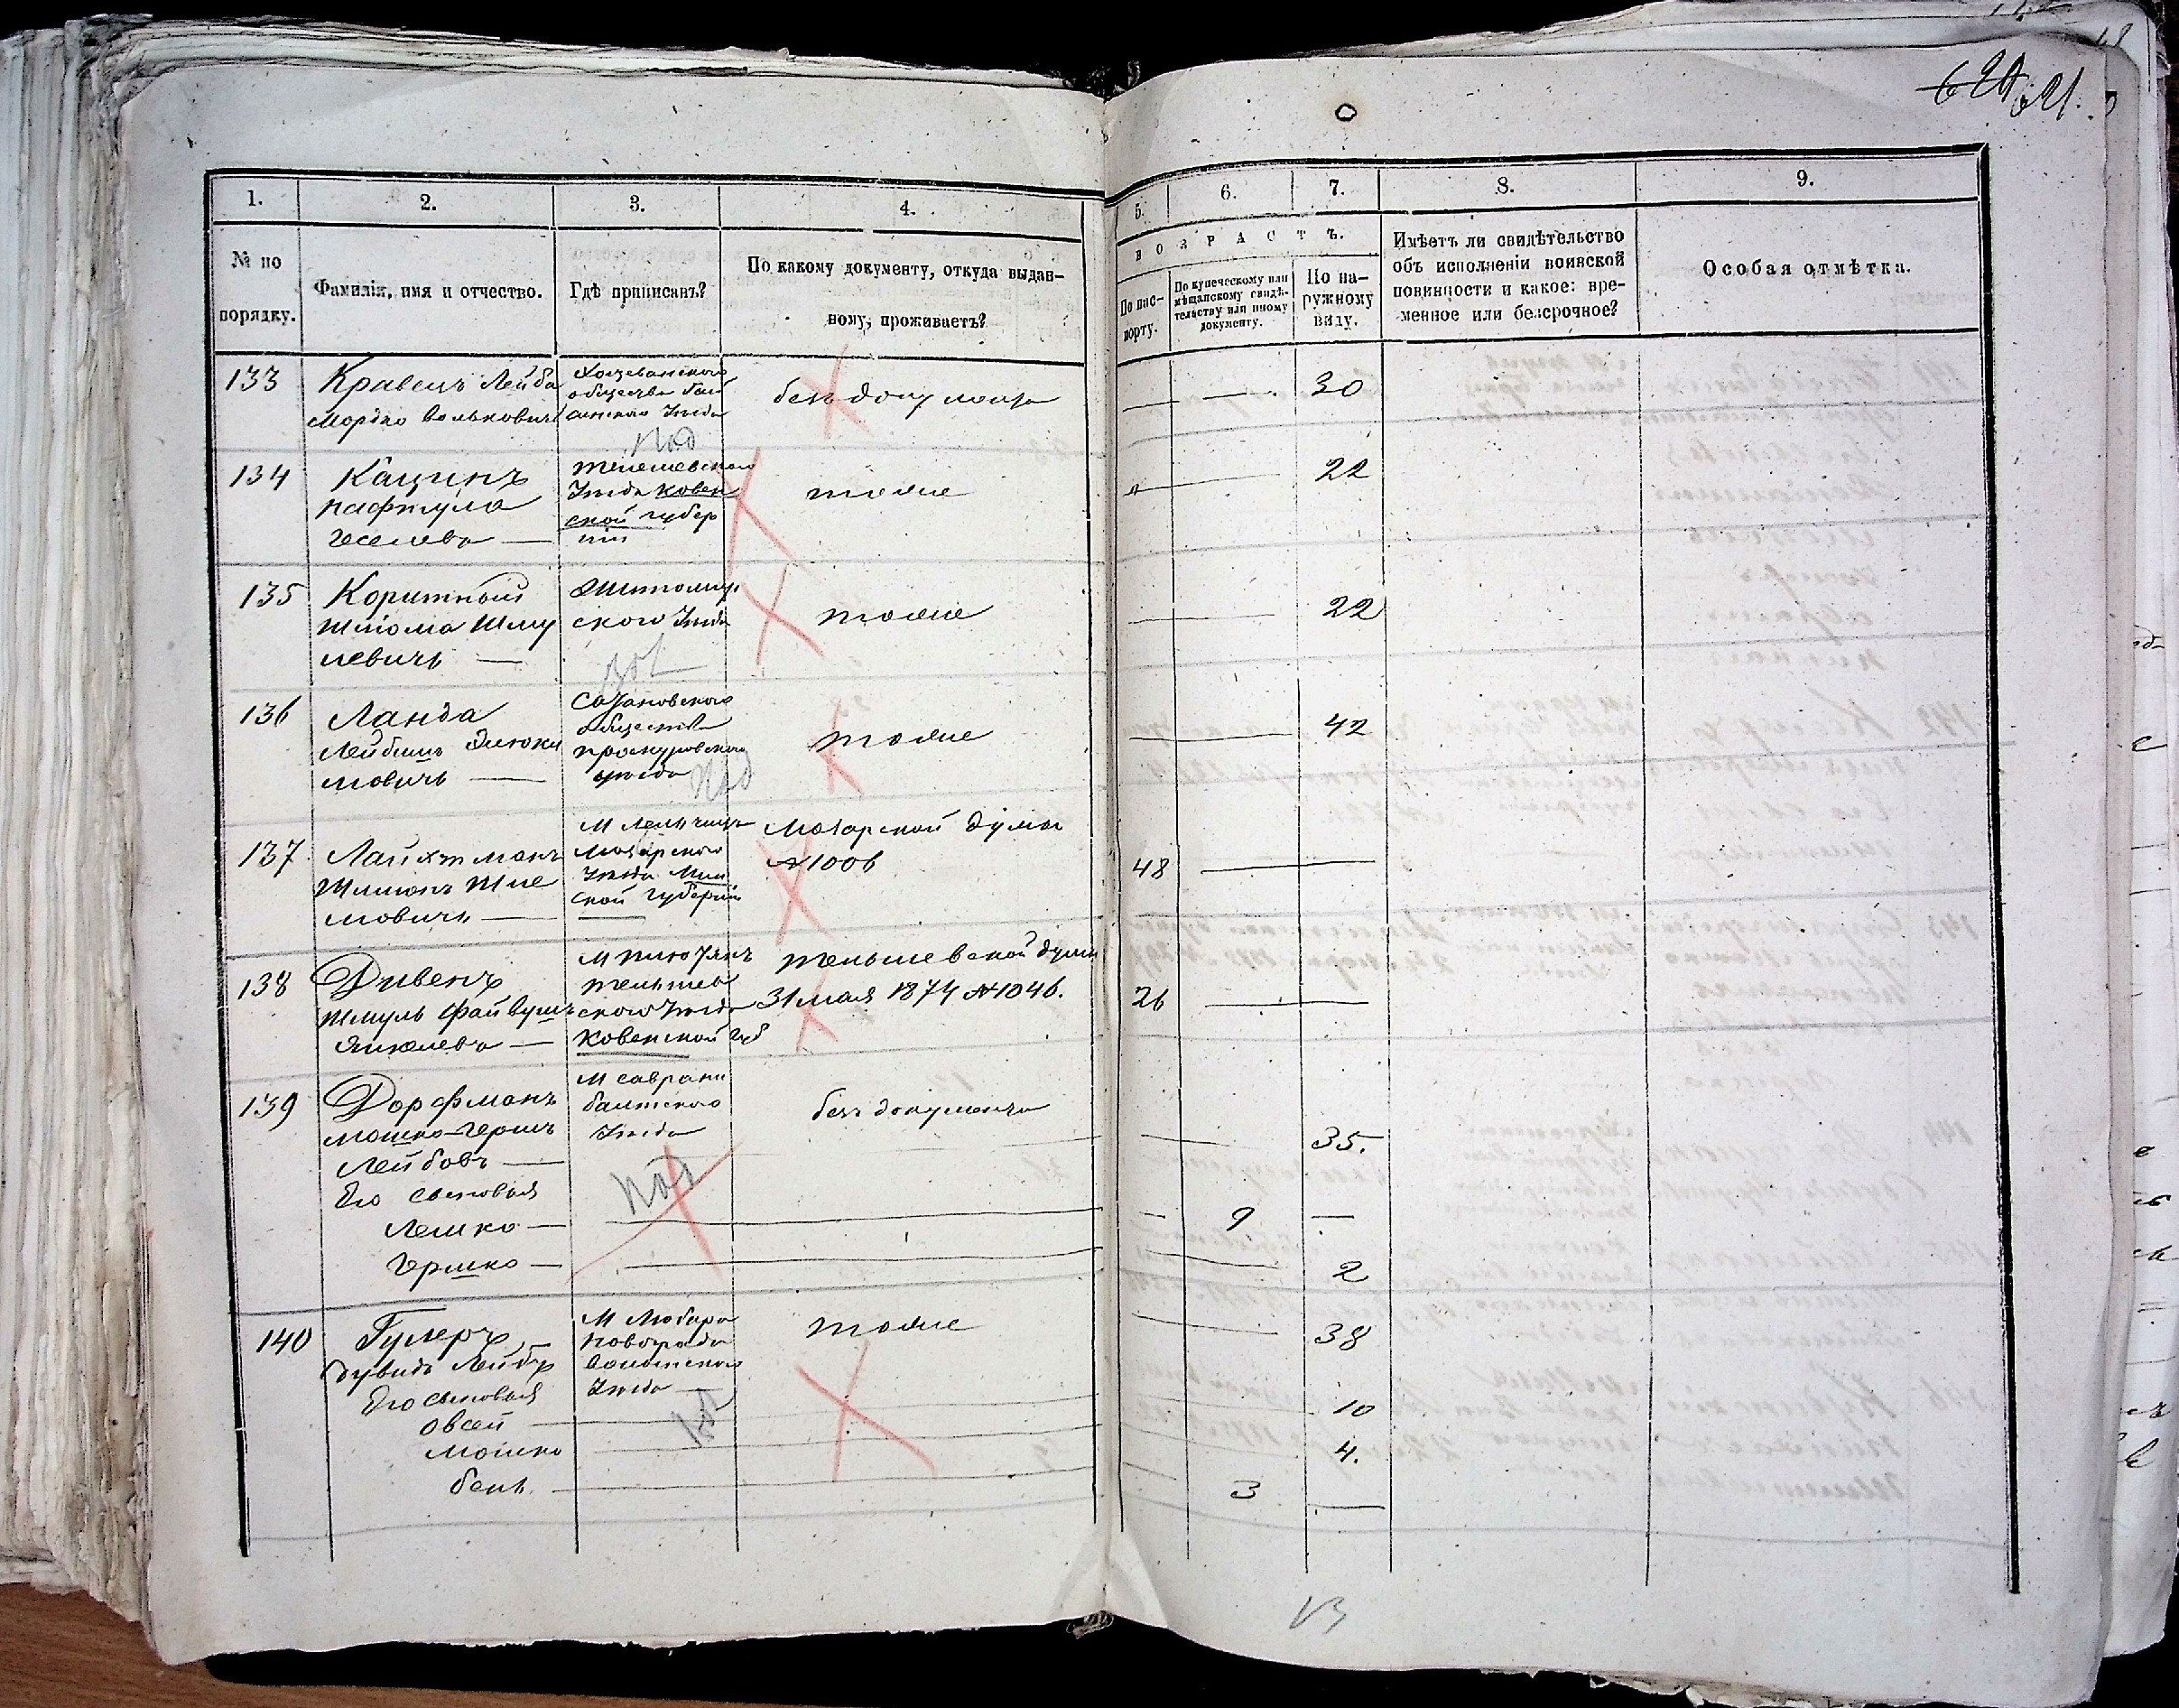 621.
1.
2.
3.
4.
5.
6.
7.
8.
9.
№ по
порядку.
Фамилія, имя и отчество.
Гдѣ приписанъ?
По какому документу, откуда выдан-
ному, проживаетъ?
ВОЗРАСТЪ.
По пас-
порту.
По купеческому или
мѣщанскому свидѣ-
тельству или иному
документу.
По на-
ружному
виду.
Имѣетъ ли свидѣтельство
объ исполненіи воинской
повинности и какое: вре-
менное или безсрочное?
Особая отмѣтка.
133
Кравецъ Лейба
Мордко Вольковичъ
общества Бал
тскаго Уѣзда
Под
безъ документа
30
134
Кацинъ
Нафтула
Геселевъ
Тельшевскаго
Уѣзда Ковен
ской губер
ніи
тоже
22
135
Коритный
Шлома Шму
левичъ
Житомир
скаго Уѣзда
Вол
тоже
22
136
Ланда
Лейбишъ
мовичъ
Сатановскаго
общества
Проскуровскаго
уѣзда
Под
тоже
42
137
Лайхтманъ
Шлиомъ Шле
мовичъ
М Лельчицъ
Мозырскаго
Уѣзда Мин
ской губерніи
Мозырской думы
№1006
48
138
Дивенъ
Шмуль Файвушъ
Янкелевъ
М
Тельшев
скаго Уѣзда
Ковенской губ
Тельшевской думы
31 мая 1874 №1046.
26
139
Дорфманъ
Мошко-Гершъ
Лейбовъ
Его сыновья
Лешко
Гершко
М Саврани
Балтскаго
Уѣзда
Под
безъ документа
35.
9
2
140
Гулеръ
Дувидъ Лейбъ
Его сыновья
Овсей
Мошко
Бенъ
М Любара
Новоградъ
Волынскаго
Уѣзда
Вол
тоже
38
10
4.
3
13